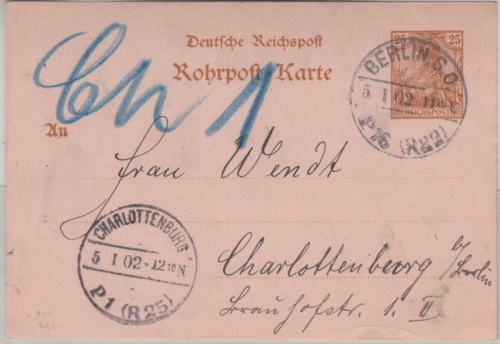 Deutsche Reichspost
Rohrpost-Karte
25 25
REICHSPOST
BERLIN. S.O
5 1 02
P16 (R22)
Ch 1
An
Frau Wendt
CHARLOTTENBURG
5 1 02 - 12 10 N
P1 (R25)
Charlottenburg
b/Berlin
Brauhofstr. 1. II